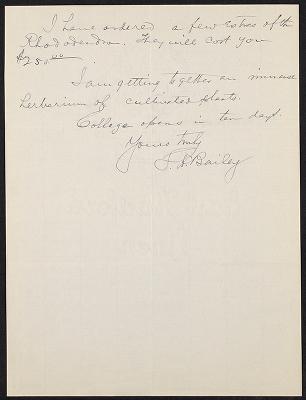 I have ordered a few extras of the
Rhododendron. They will cost you
$2 50.00
I am getting together an immense
herbarium of cultivated plants.
College opens in ten days.
Yours truly
Bailey